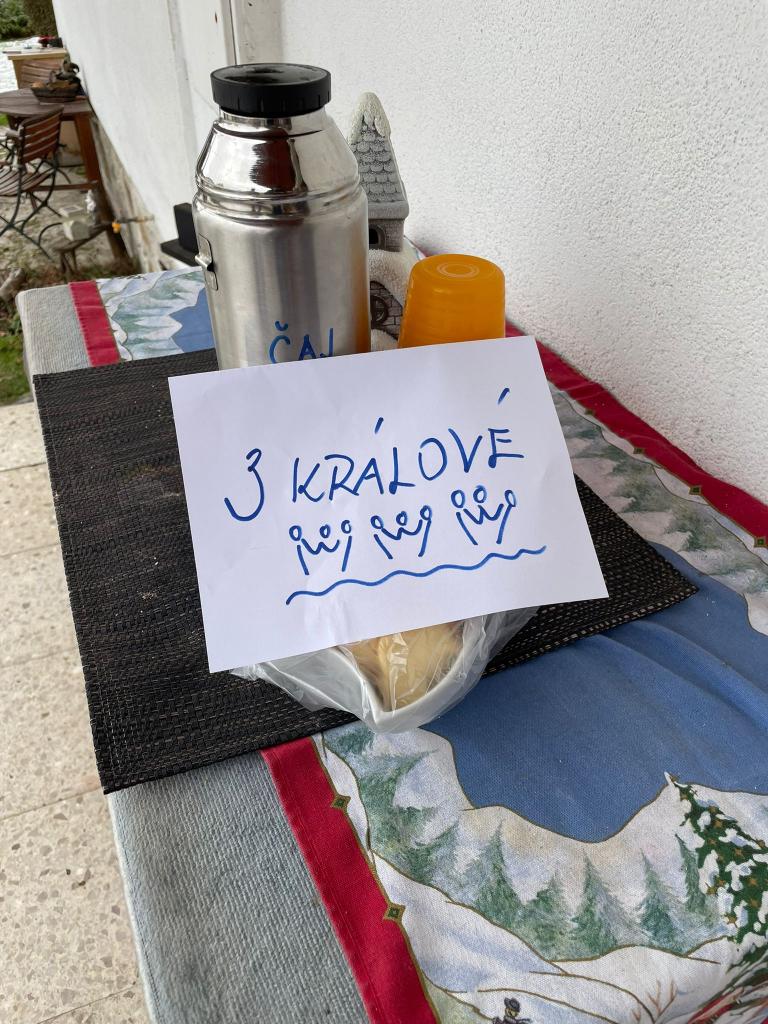 ČAJ
3 KRÁLOVÉ